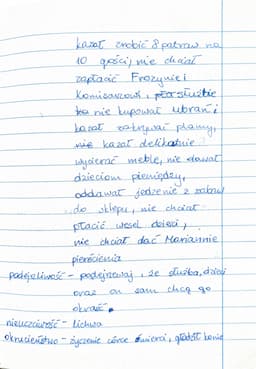 kazał zrobić 8 potraw na
10 gości, nie chciał
zapłacić Frozynie i
Komisarzowi,
nie kupował ubrań i
kazał zakrywać plamy,
nie kazał delikatnie
wycierać meble, nie dawał
dzieciom pieniędzy,
oddawał jedzenie z zabaw
do sklepu, nie chciał
płacić wesel dzieci,
nie chciał dać Mariannie
pierścienia
podejrzliwość - podejrzewał, że służba, dzieci
oraz on sam chcą go
okraść.
nieuczciwość - lichwa
okrucieństwo - życzenie córce śmierci,